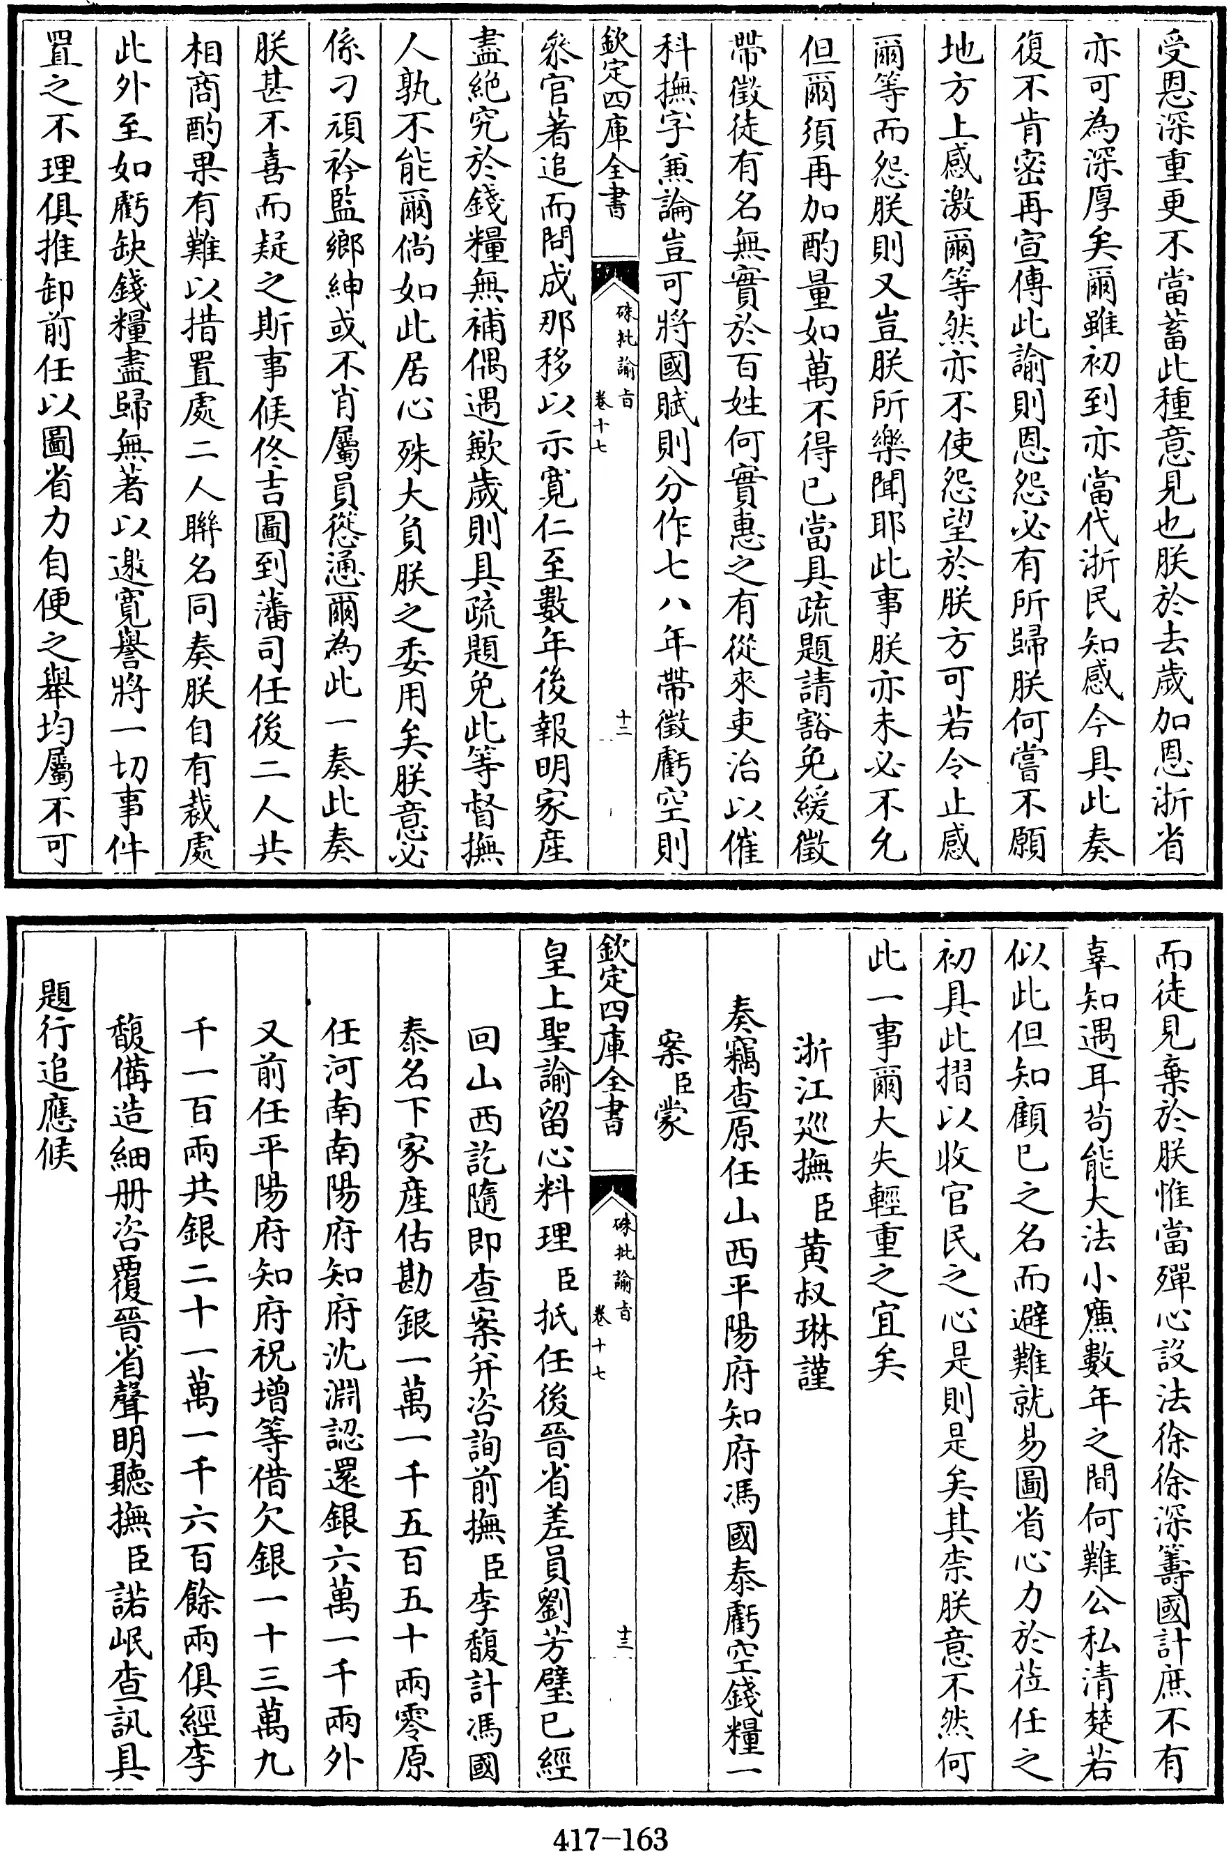 受恩深重更不當蓄此種意見也朕於去歲加恩浙省
亦可為深厚矣爾雖初到亦當代浙民知感今具此奏
復不肯密再宣傳此諭則恩怨必有所歸朕何嘗不願
地方上感激爾等然亦不使怨望於朕方可若令止感
爾等而怨朕則又豈朕所樂聞耶此事朕亦未必不允
但爾須再加酌量如萬不得已當具疏題請豁免緩徵
帶徵徒有名無實於百姓何實惠之有從來吏治以催
科撫字兼論豈可將國賦則分作七八年帶徵虧空則
欽定四庫全書
硃批諭旨
卷十七
十二
叅官著追而問成那移以示寬仁至數年後報明家産
盡絕究於錢糧無補偶遇歉歲則具疏題免此等督撫
人孰不能爾倘如此居心殊大負朕之委用矣朕意必
係刁頑衿監鄉紳或不肖屬員慫慂爾為此一奏此奏
朕甚不喜而疑之斯事候佟吉圖到藩司任後二人共
相商酌果有難以措置處二人聯名同奏朕自有裁處
此外至如虧缺錢糧盡歸無著以邀寬譽將一切事件
置之不理俱推卸前任以圖省力自便之舉均屬不可
而徒見棄於朕惟當殫心設法徐徐深籌國計庶不有
辜知遇耳苟能大法小廉數年之間何難公私清楚若
似此但知顧已之名而避難就易圖省心力於莅任之
初具此摺以收官民之心是則是矣其柰朕意不然何
此一事爾大失輕重之宜矣
浙江廵撫臣黃叔琳謹
奏竊查原任山西平陽府知府馮國泰虧空錢糧一
案臣蒙
欽定四庫全書
硃批諭旨
卷十七
十三
皇上聖諭留心料理臣抵任後晉省差員劉芳璧已經
回山西訖隨即查案弁咨詢前撫臣李馥計馮國
泰名下家産估勘銀一萬一千五百五十兩零原
任河南南陽府知府沈淵認還銀六萬一千兩外
又前任平陽府知府祝增等借欠銀一十三萬九
千一百兩共銀二十一萬一千六百餘兩俱經李
馥備造細册咨覆晉省聲明聽撫臣諾岷查訊具
題行追應候
417-163